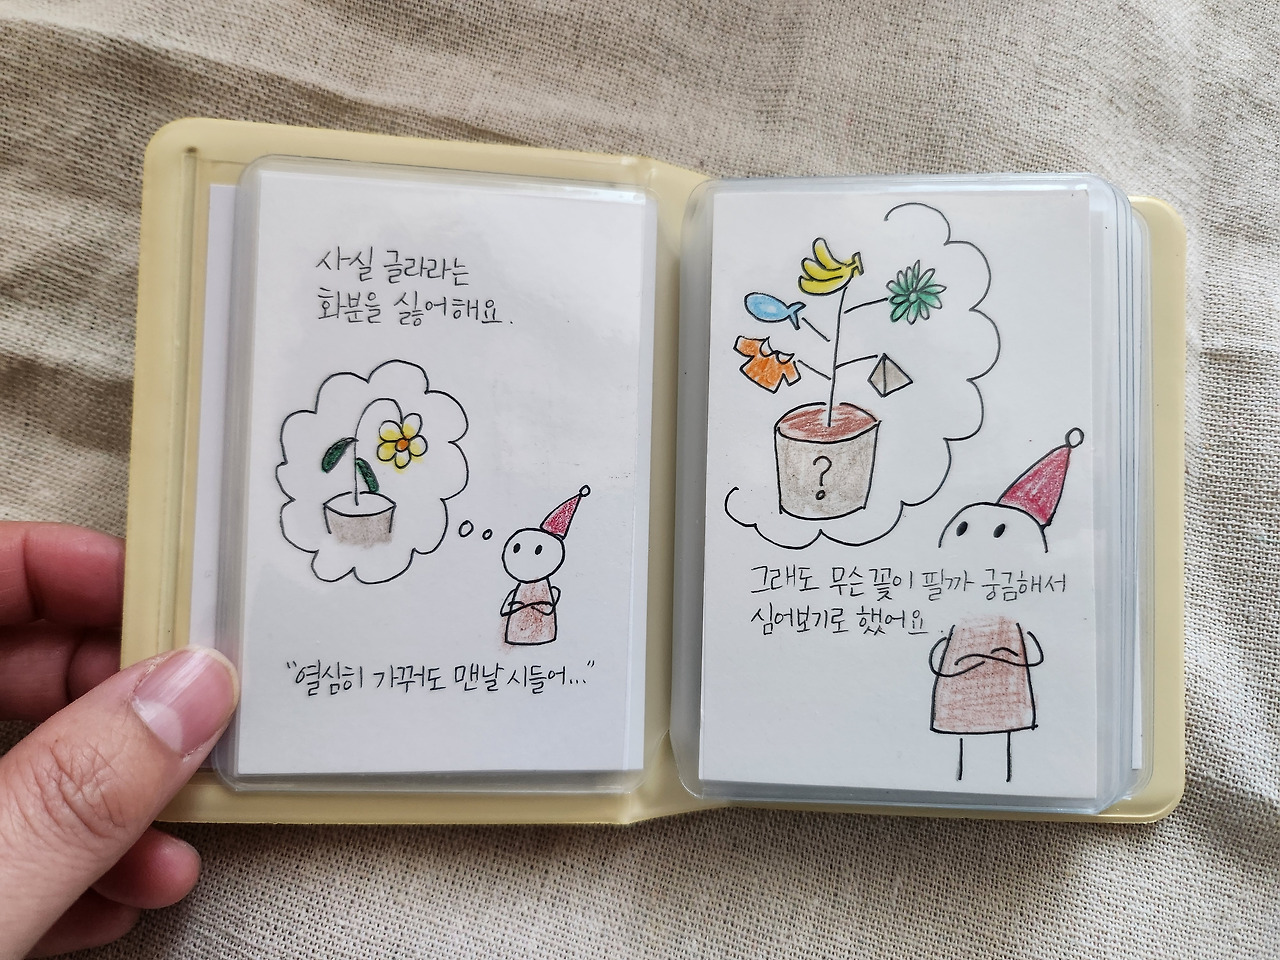 사실 글라라는
화분을 싫어해요.
"열심히 가꿔도 맨날 시들어..."
?
그래도 무슨 꽃이 필까 궁금해서
심어보기로 했어요.